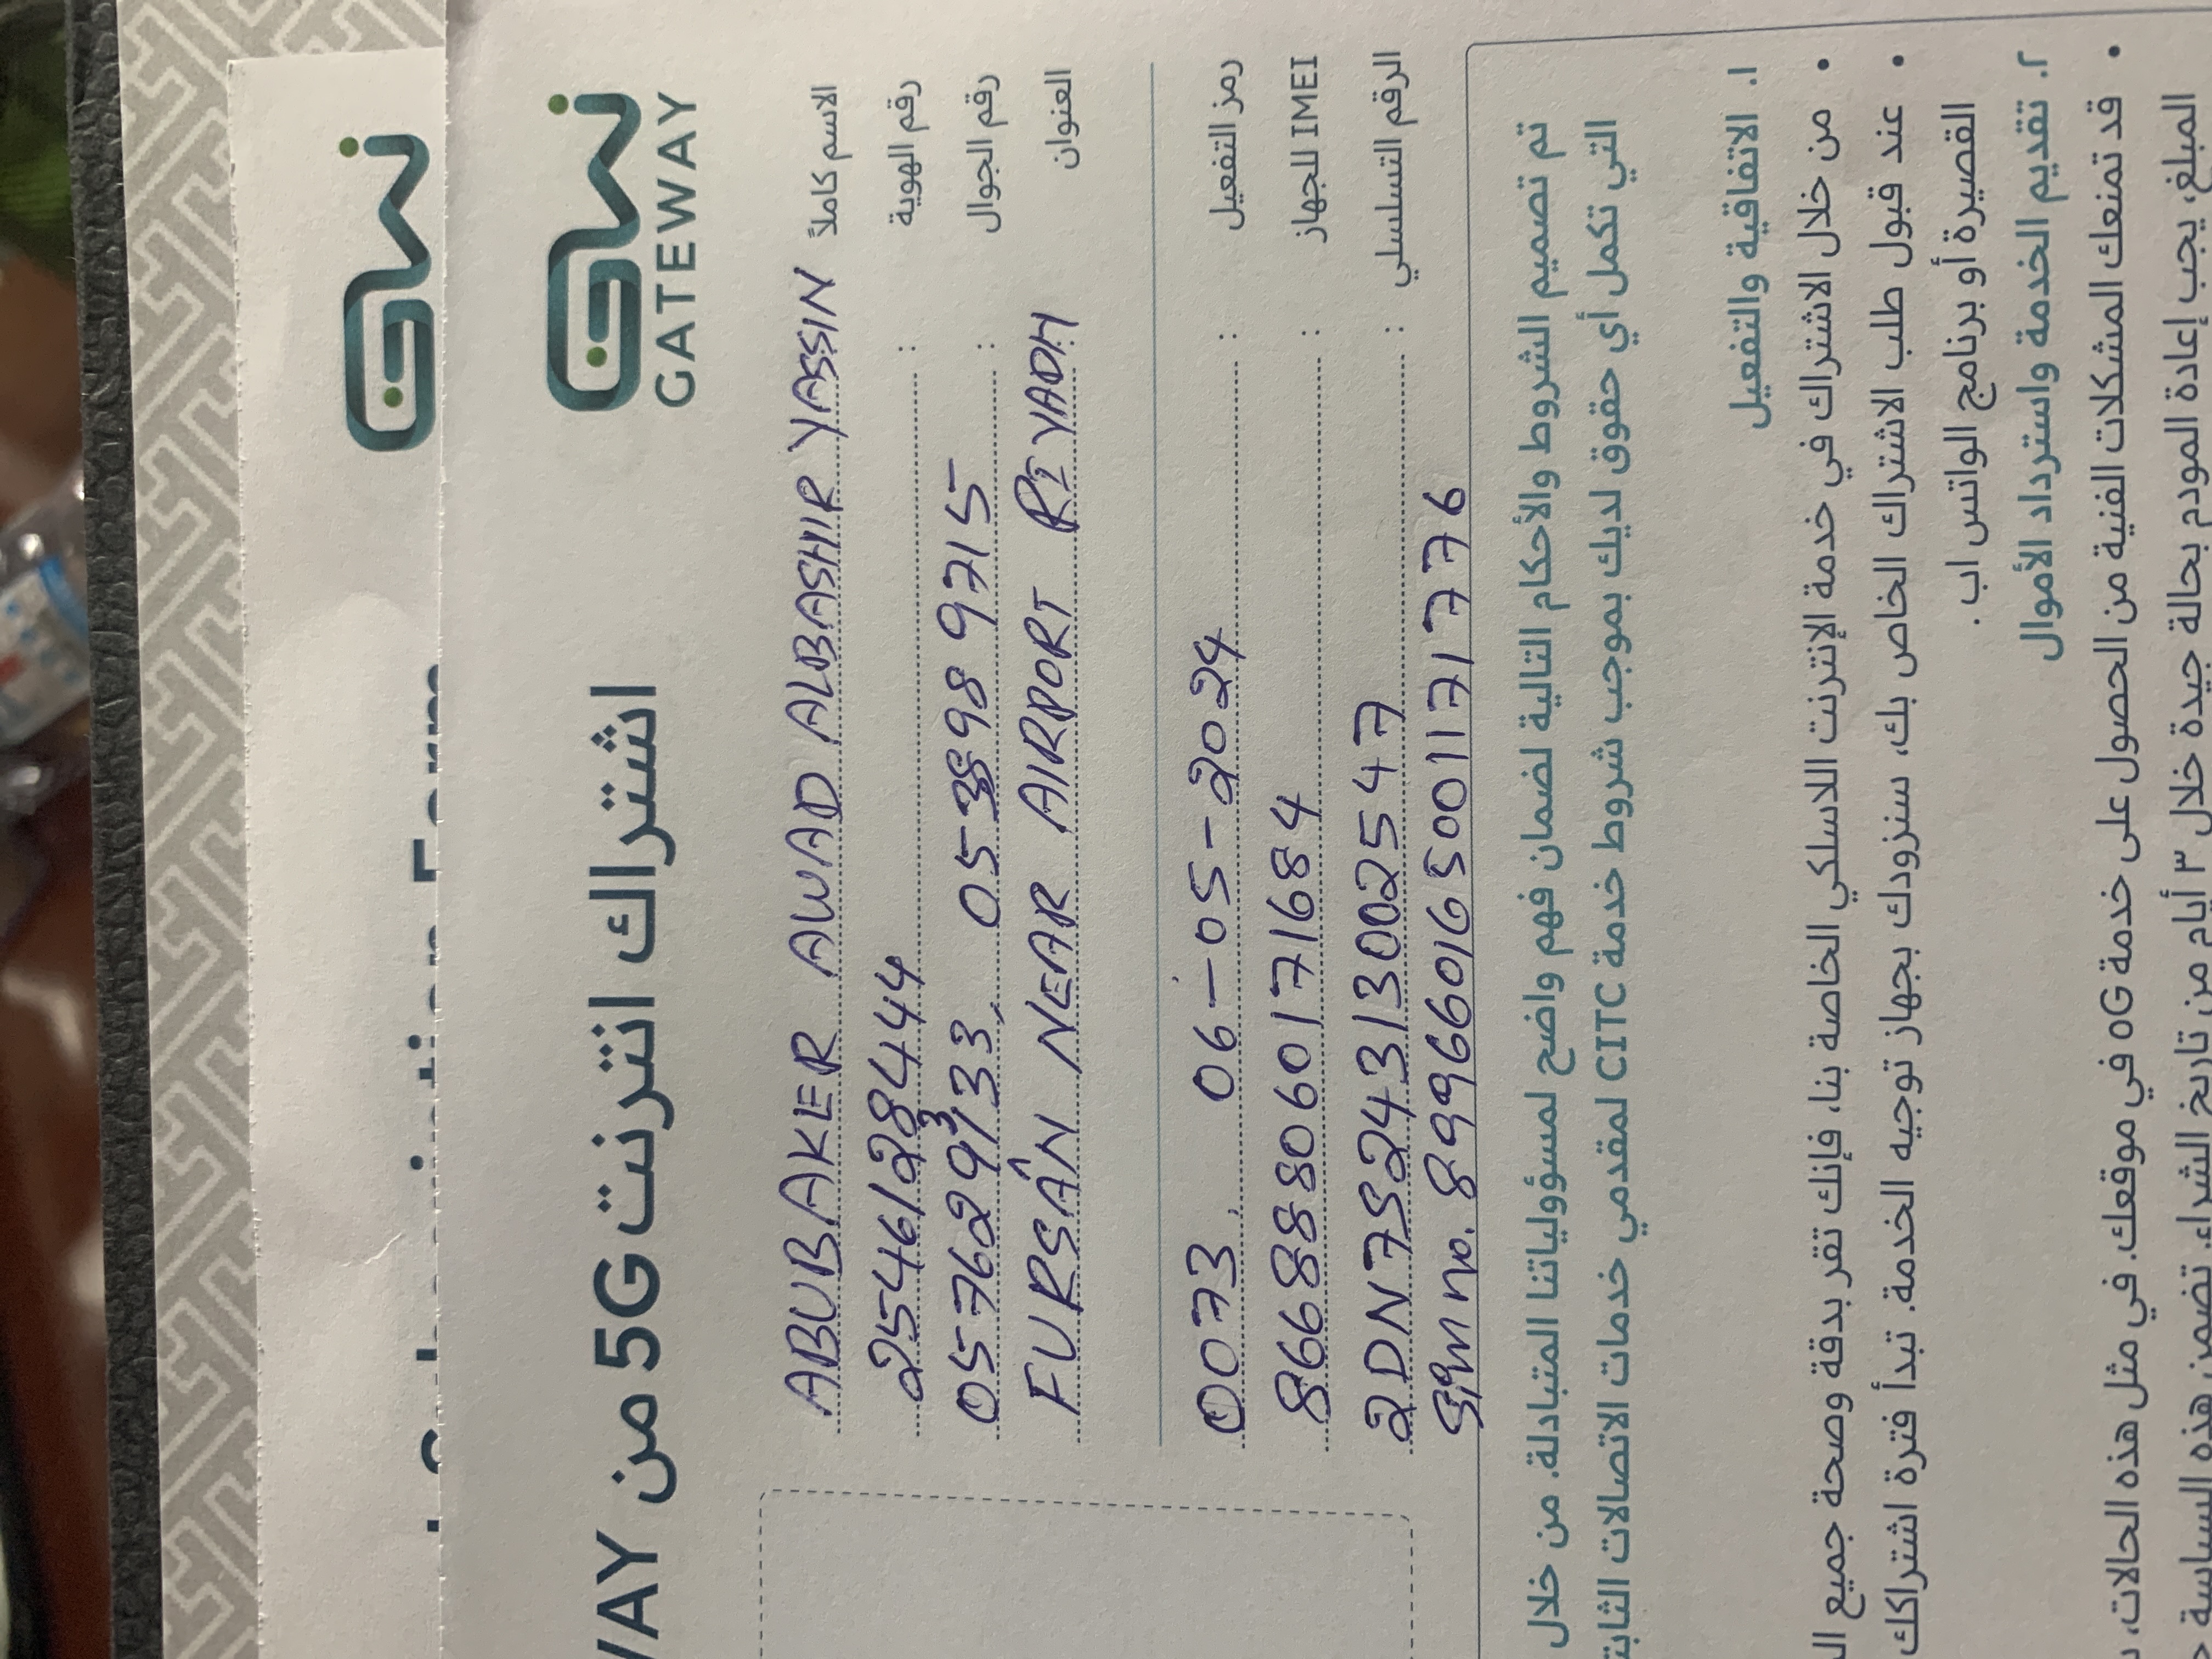 نقاء
نقاء
GATEWAY
اشتراك انترنت 5G من WAY
الاسم كاملاً ABUBAKER AWAD ALBASHIR YASSIN
رقم الهوية : 2546128444
رقم الجوال : 0576293133, 0538989715
العنوان FURSAN NEAR AIRPORT RIYADH
رمز التفعيل : 0073, 06-05-2024
IMEI للجهاز : 866888060171684
الرقم التسلسلي : 2DN7S24313002547
Sim no. 899660165001171776
تم تصميم الشروط والأحكام التالية لضمان فهم واضح لمسؤولياتنا المتبادلة. من خلال
التي تكمل أي حقوق لديك بموجب شروط خدمة CITC لمقدمي خدمات الاتصالات الثابتة
١. الاتفاقية والتفعيل
• من خلال الاشتراك في خدمة الإنترنت اللاسلكي الخاصة بنا، فإنك تقر بدقة وصحة جميع
• عند قبول طلب الاشتراك الخاص بك، سنزودك بجهاز توجيه الخدمة. تبدأ فترة اشتراكك
القصيرة أو برنامج الواتس اب .
٢. تقديم الخدمة واسترداد الأموال
• قد تمنعك المشكلات الفنية من الحصول على خدمة 5G في موقعك. في مثل هذه الحالات،
المبلغ، يجب إعادة المودم بحالة جيدة خلال ٣ أيام من تاريخ الشراء. تضمن هذه السياسة